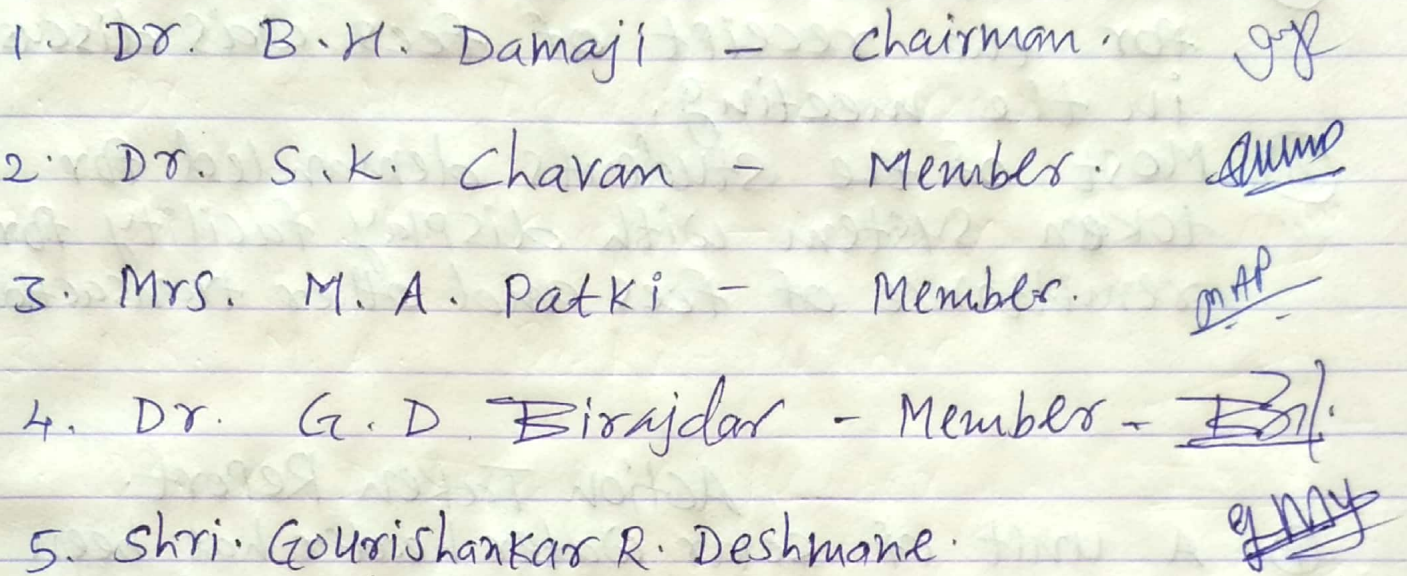 1. Dr. B.H. Damaji - Chairman.
2. Dr. S.K. Chavan - Member.
3. Mrs. M.A. Patki - Member. MAP
4. Dr. G.D. Birajdar - Member -
5. Shri. Gourishankar R. Deshmane.